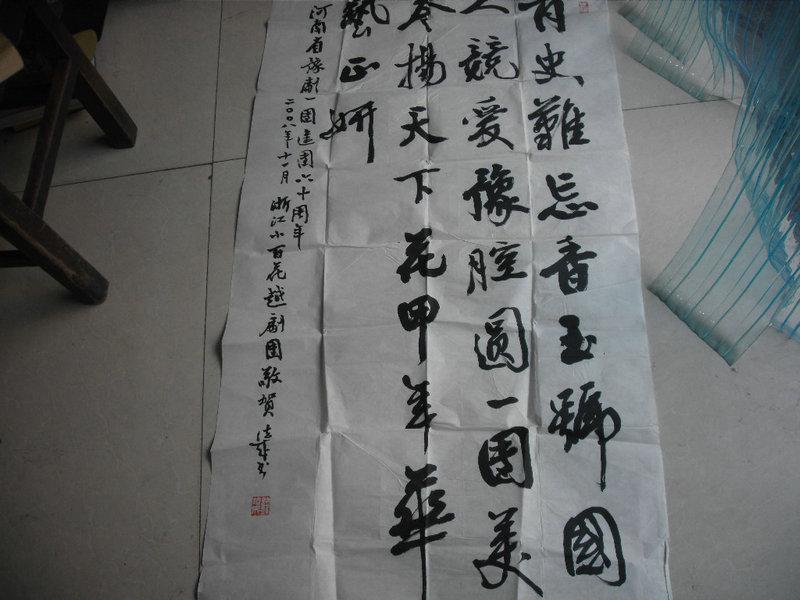 青史難忘香玉號國
人競愛豫腔圓一團美
冬揚天下花甲年華
藝正妍
河南省豫劇一團建團六十周年
二〇〇八年十一月 浙江小百花越劇團敬賀